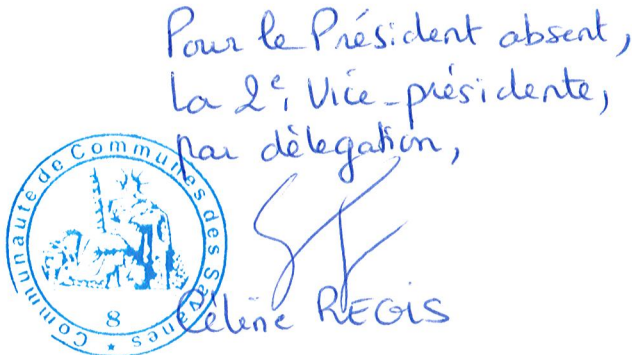 Pour le Président absent,
La 2e, Vice-présidente,
par délégation,
Communauté de Communes des Savanes
8
Céline REGIS